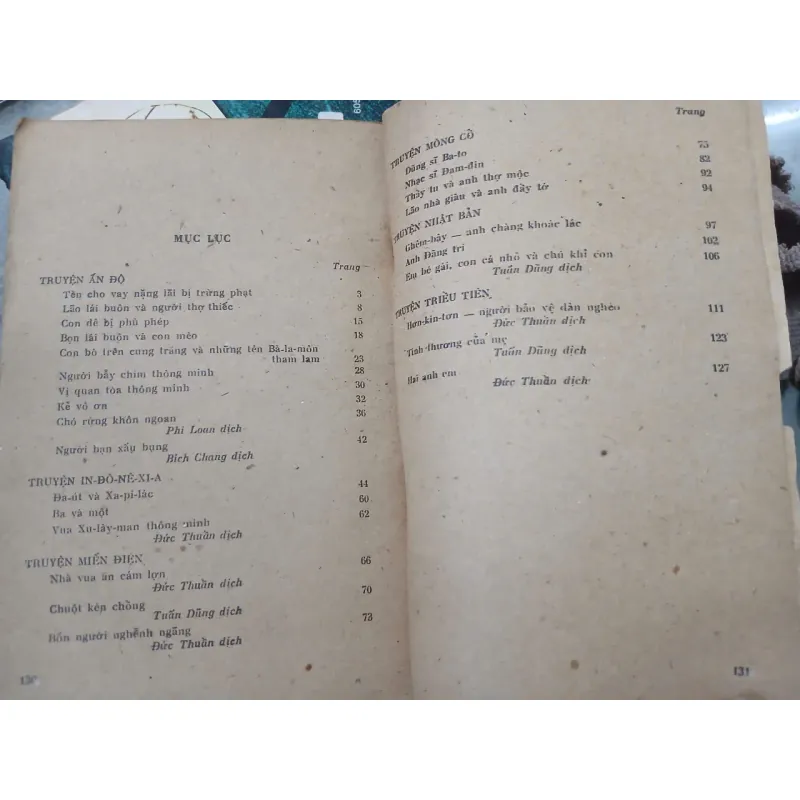 MỤC LỤC
Trang
TRUYỆN ẤN ĐỘ
Tên cho vay nặng lãi bị trừng phạt 3
Lão lái buôn và người thợ thiếc 8
Con dê bị phù phép 15
Bọn lái buôn và con mèo 18
Con bò trên cung trăng và những tên Bà-la-môn
tham lam 23
Người bẫy chim thông minh 28
Vị quan tòa thông minh 30
Kẻ vô ơn 32
Chó rừng khôn ngoan 36
Phi Loan dịch
Người bạn xấu bụng 42
Bích Chang dịch
TRUYỆN IN-ĐÔ-NÊ-XI-A
Đa-út và Xa-pi-lác 44
Ba và một 60
Vua Xu-lây-man thông minh 62
Đức Thuần dịch
TRUYỆN MIẾN ĐIỆN
Nhà vua ăn cám lợn 66
Đức Thuần dịch
Chuột kén chồng 70
Tuấn Dũng dịch
Bốn người nghễnh ngãng 73
Đức Thuần dịch
Trang
TRUYỆN MÔNG CỔ
Dũng sĩ Ba-to 75
Nhạc sĩ Đam-đin 82
Thầy tu và anh thợ mộc 92
Lão nhà giàu và anh đầy tớ 94
TRUYỆN NHẬT BẢN
Ghêm-bây — anh chàng khoác lác 97
Anh Đãng trí 102
Em bé gái, con cá nhỏ và chú khỉ con 106
Tuấn Dũng dịch
TRUYỆN TRIỀU TIÊN
Hơn-kin-tơn — người bảo vệ dân nghèo 111
Đức Thuần dịch
Tình thương của mẹ 123
Tuấn Dũng dịch
Hai anh em 127
Đức Thuần dịch
131